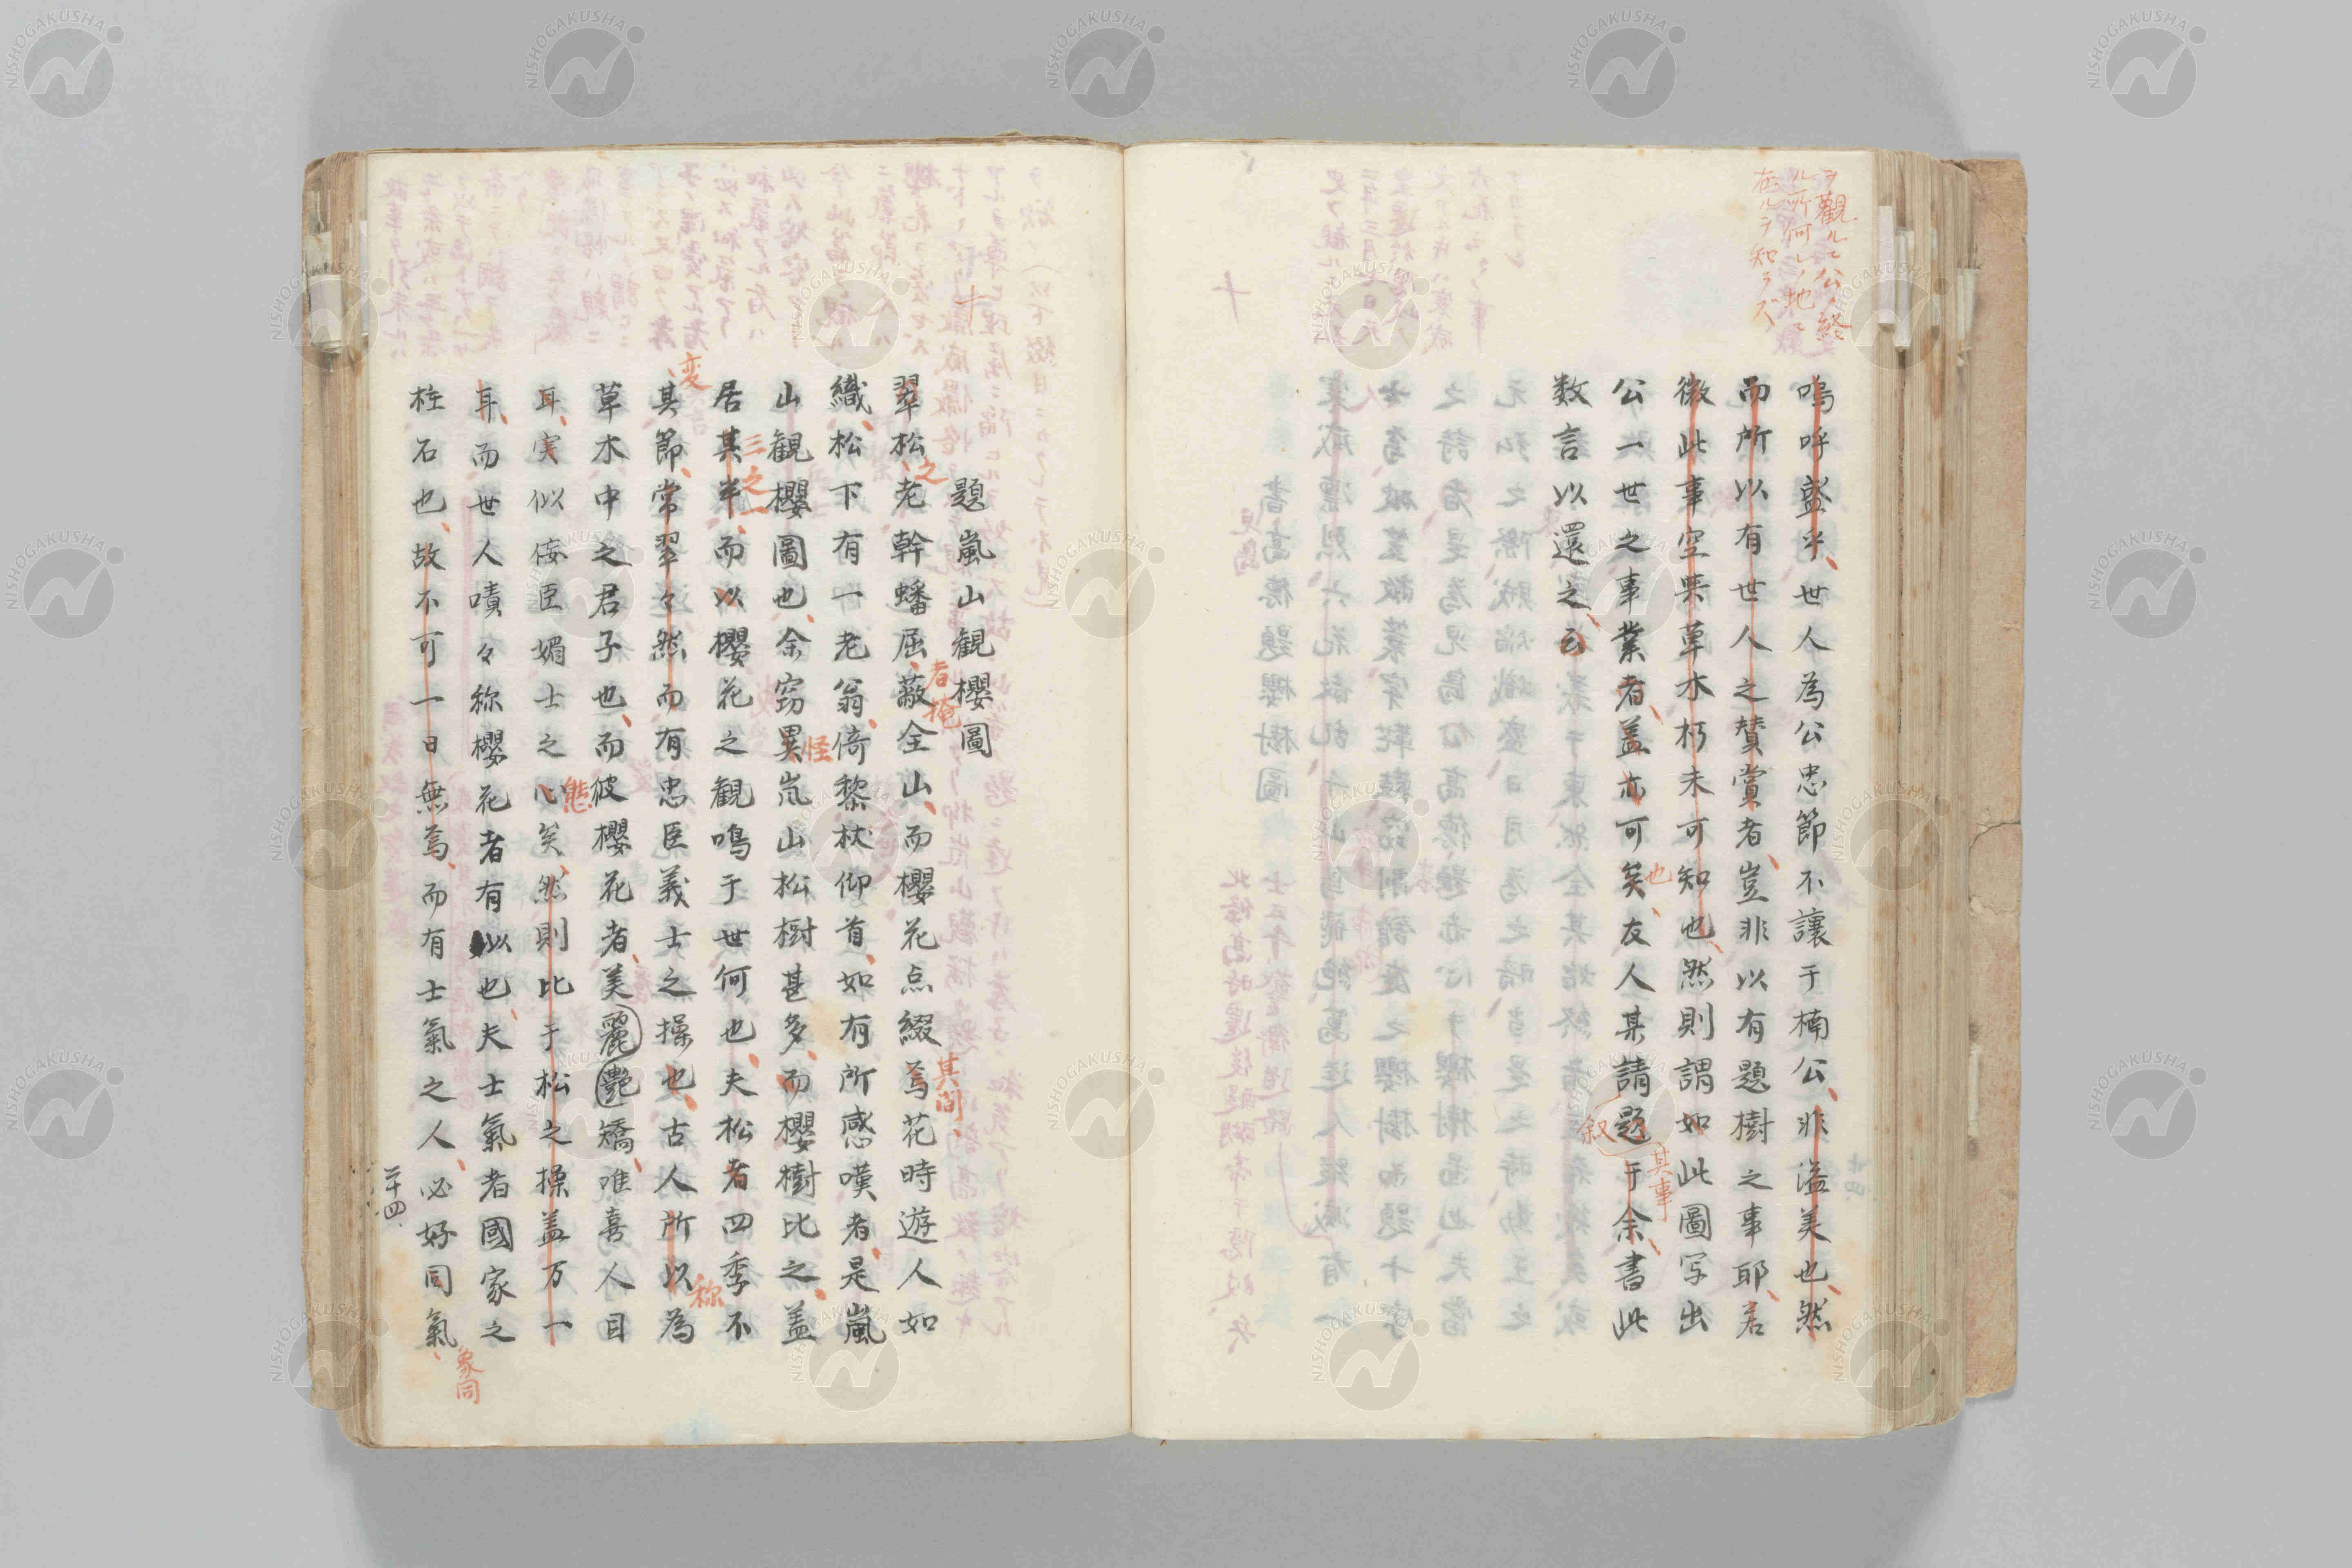 ヲ觀ルニ公ノ終
ル所何レノ地ニ
在ルヲ知ラズ
嗚呼盛乎世人為公忠節不讓于楠公非溢美也然
而所以有世人之賛賞者豈非以有題樹之事耶若
微此事空與草木朽未可知也然則謂如此圖写出
公一世之事業者蓋亦可矣友人某請題于余書此
也
叙
其事
数言以還之云
十
題嵐山観櫻圖
翠松老幹蟠屈蔽全山而櫻花点綴焉花時遊人如
之
者掩
其間
織松下有一老翁倚黎杖仰首如有所感嘆者是嵐
山観櫻圖也余窃異嵐山松樹甚多而櫻樹比之蓋
怪
居其半而以櫻花之観鳴于世何也夫松者四季不
三之一
其節常翠々然而有忠臣義士之操也古人所以為
変
称
草木中之君子也而彼櫻花者美麗艶矯唯喜人目
耳実似佞臣媚士之心矣然則比于松之操蓋万一
態
耳而世人嘖々称櫻花者有以也夫士氣者國家之
柱石也故不可一日無焉而有士氣之人必好同氣
象同
二十四
NISHOGAKUSHA